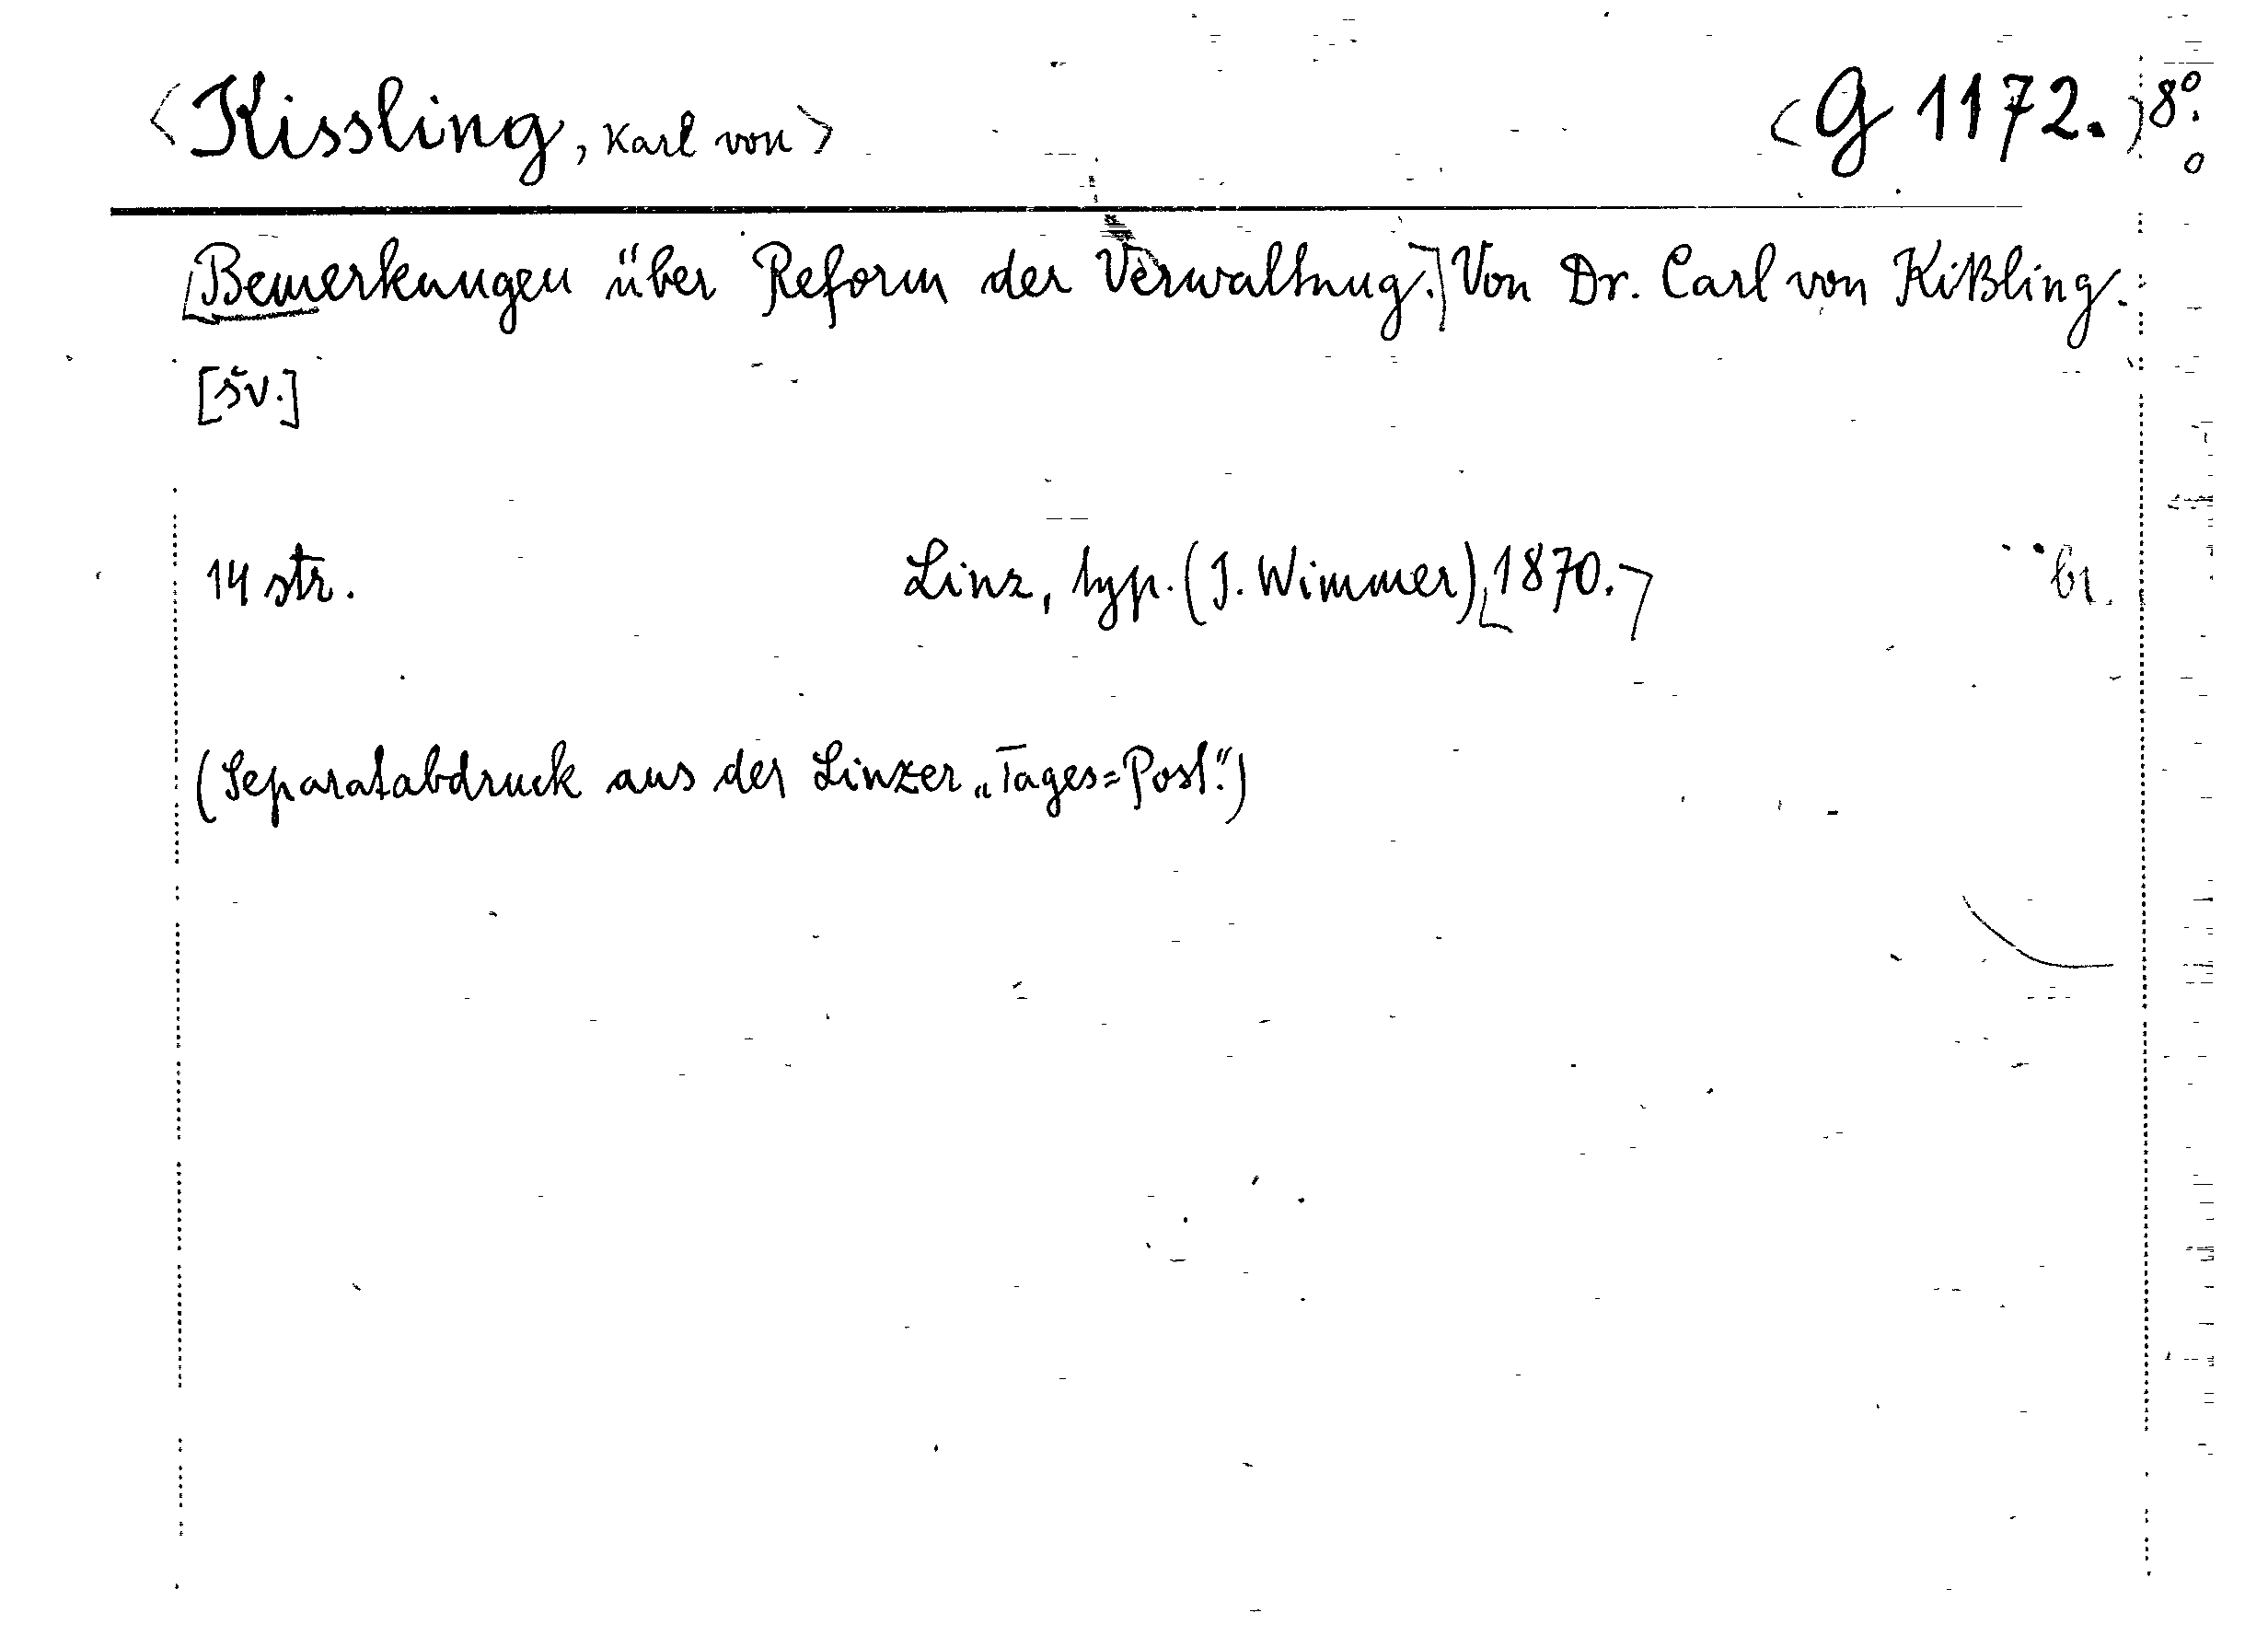 <Kissling, Karl von> <G 1172.> 8º.
[Bemerkungen über Reform der Verwaltung.] Von Dr. Carl von Kißling.
[šv.]
14 str. Linz, typ. (J. Wimmer) [1870.] br.
(Separatabdruck aus der Linzer „Tages=Post“.)